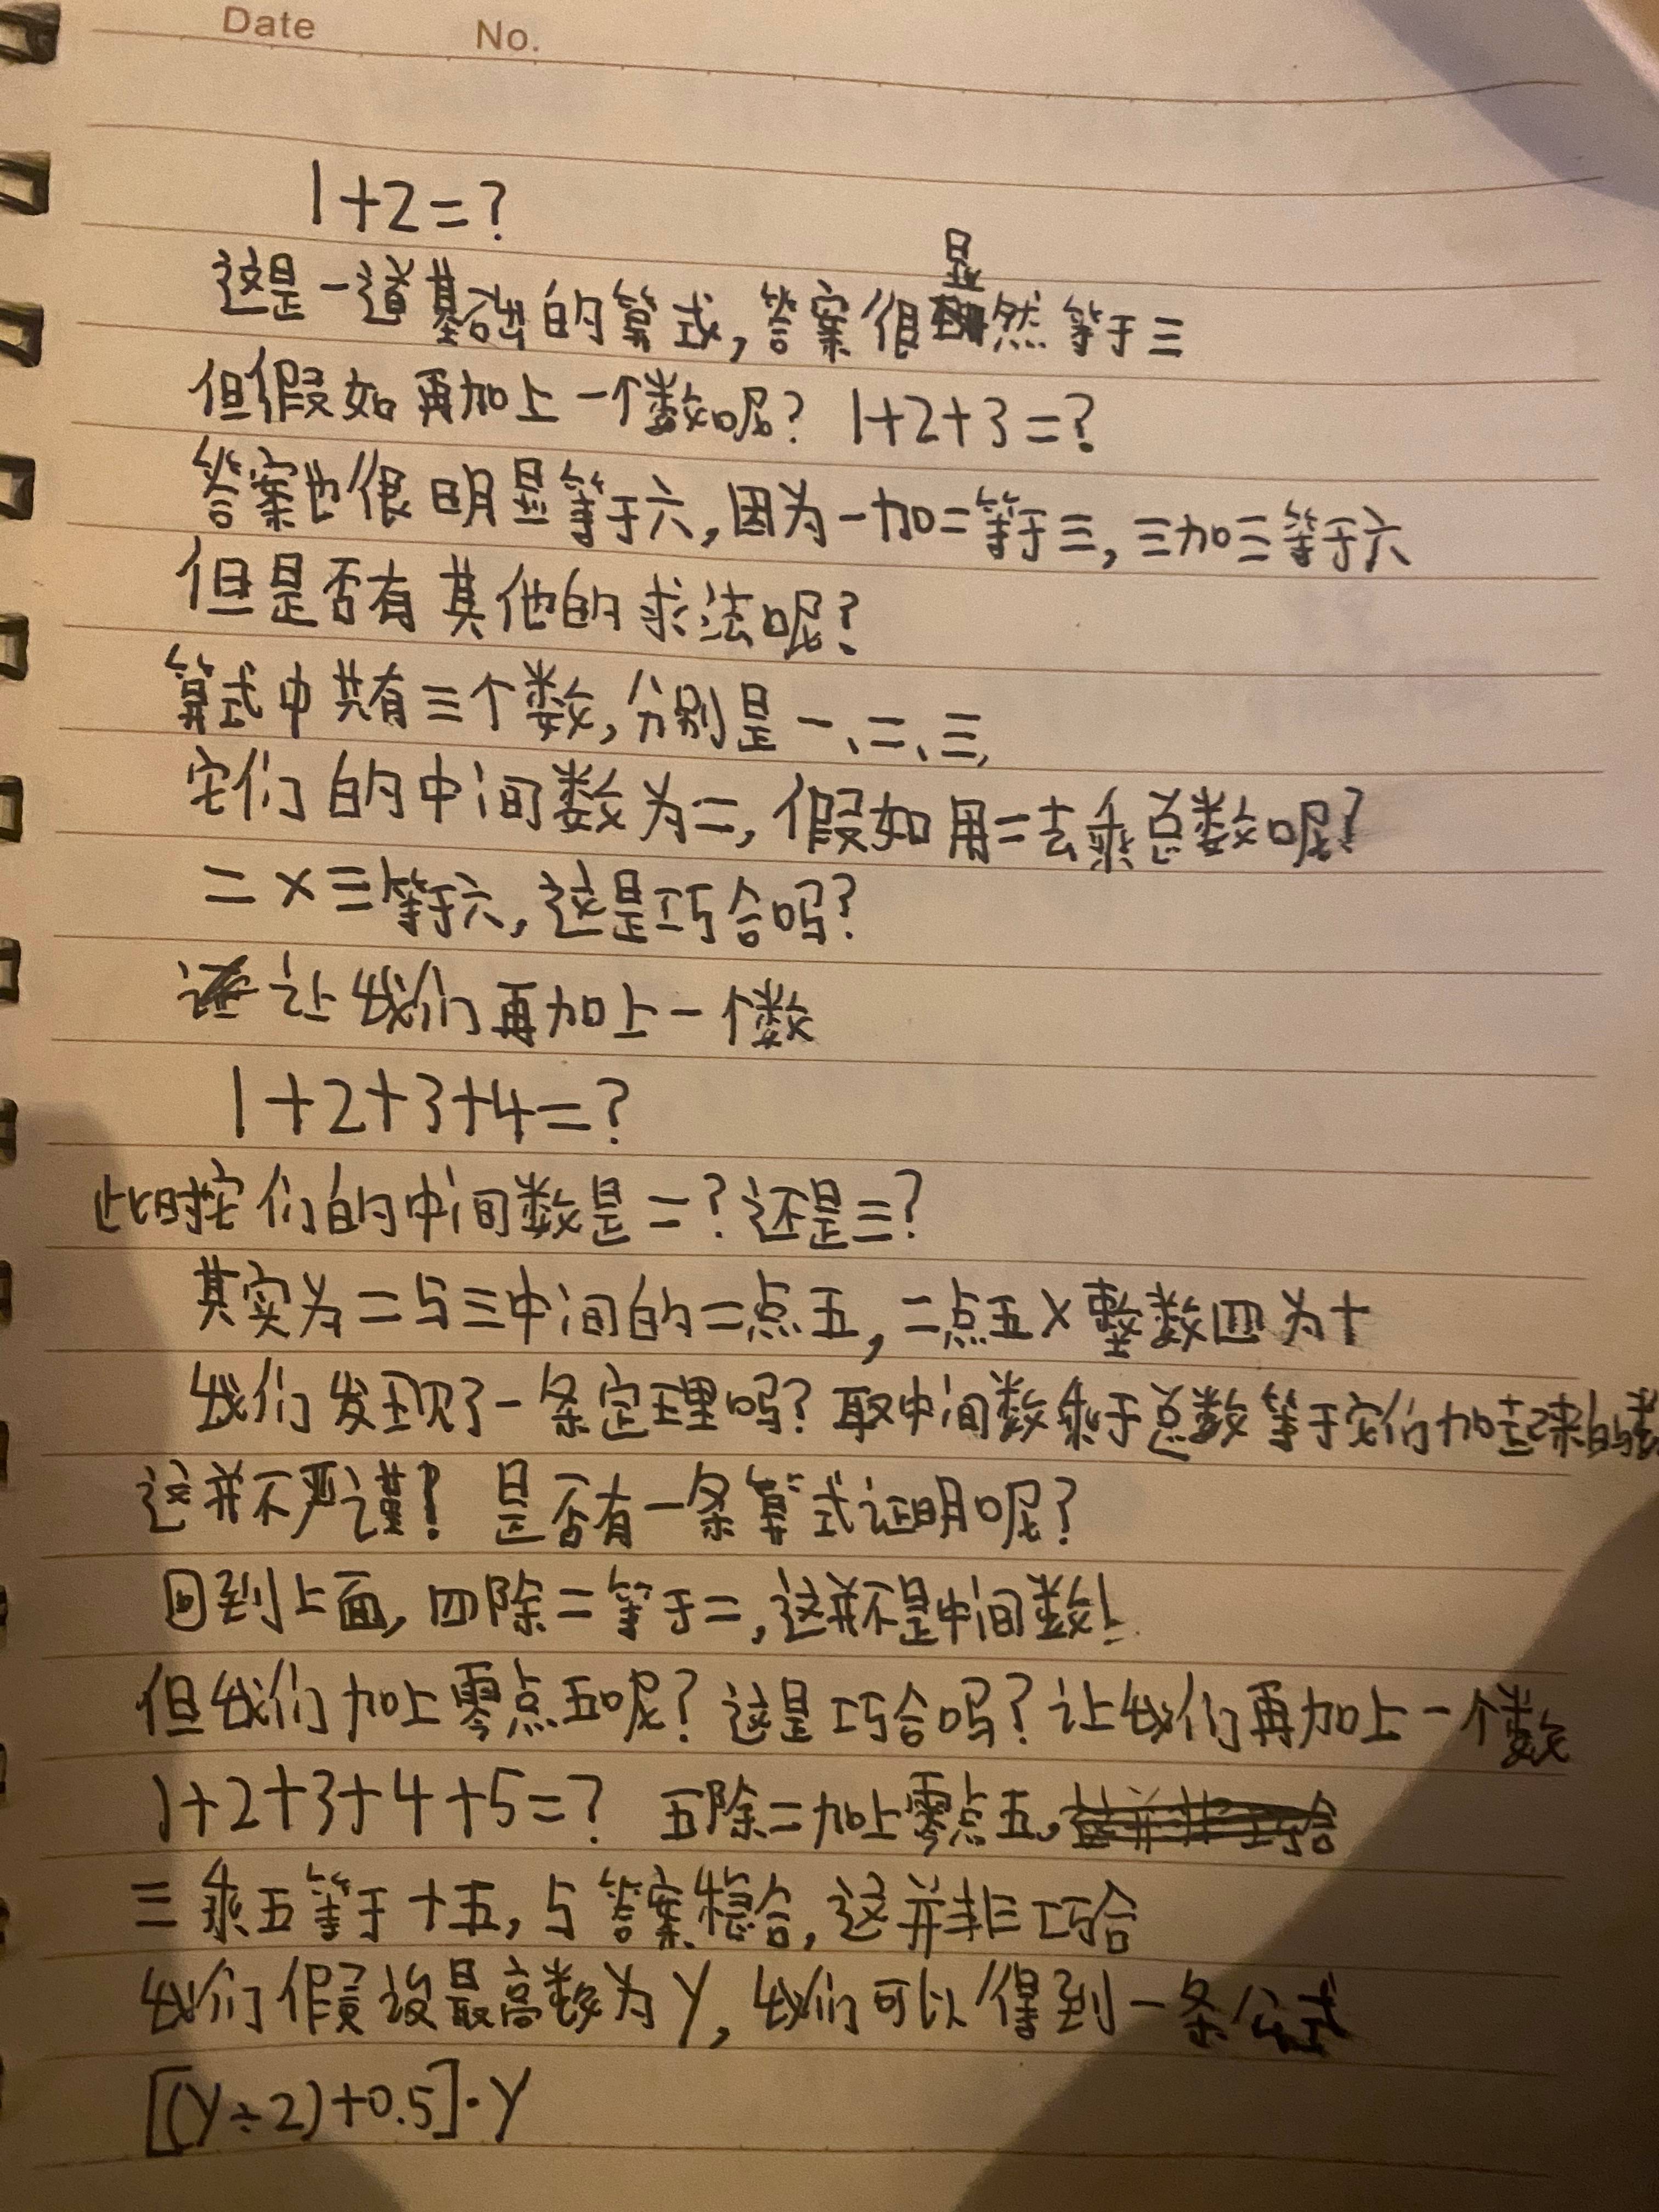 Date No.
1+2=?
这是一道基础的算式,答案很显然等于三
但假如再加上一个数呢? 1+2+3=?
答案也很明显等于六,因为一加二等于三,三加三等于六
但是否有其他的求法呢?
算式中共有三个数,分别是一、二、三,
它们的中间数为二,假如用二去乘总数呢?
二×三等六,这是巧合吗?
让我们再加上一个数
1+2+3+4=?
此时它们的中间数是二?还是三?
其实为二与三中间的二点五,二点五×整数四为十
我们发现了一条定理吗?取中间数乘于总数等于它们加起来的
这并不严谨!是否有一条算式证明呢?
回到上面,四除二等于二,这并不是中间数!
但我们加上零点五呢?这是巧合吗?让我们再加上一个数
1+2+3+4+5=? 五除二加上零点五,
三乘五等于十五,与答案合,这并非巧合
我们假设最高数为Y,我们可以得到一条公式
[(Y÷2)+0.5]·Y